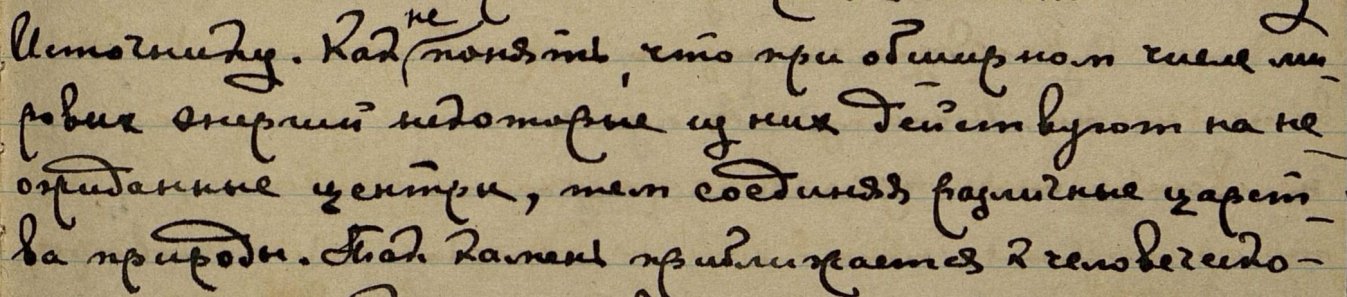 Источнику. Как не понять, что при обширном числе ми-
ровых энергий некоторые из них действуют на не-
ожиданные центры, тем соединяя различные царст-
ва природы. Так камень приближается к человеческо-